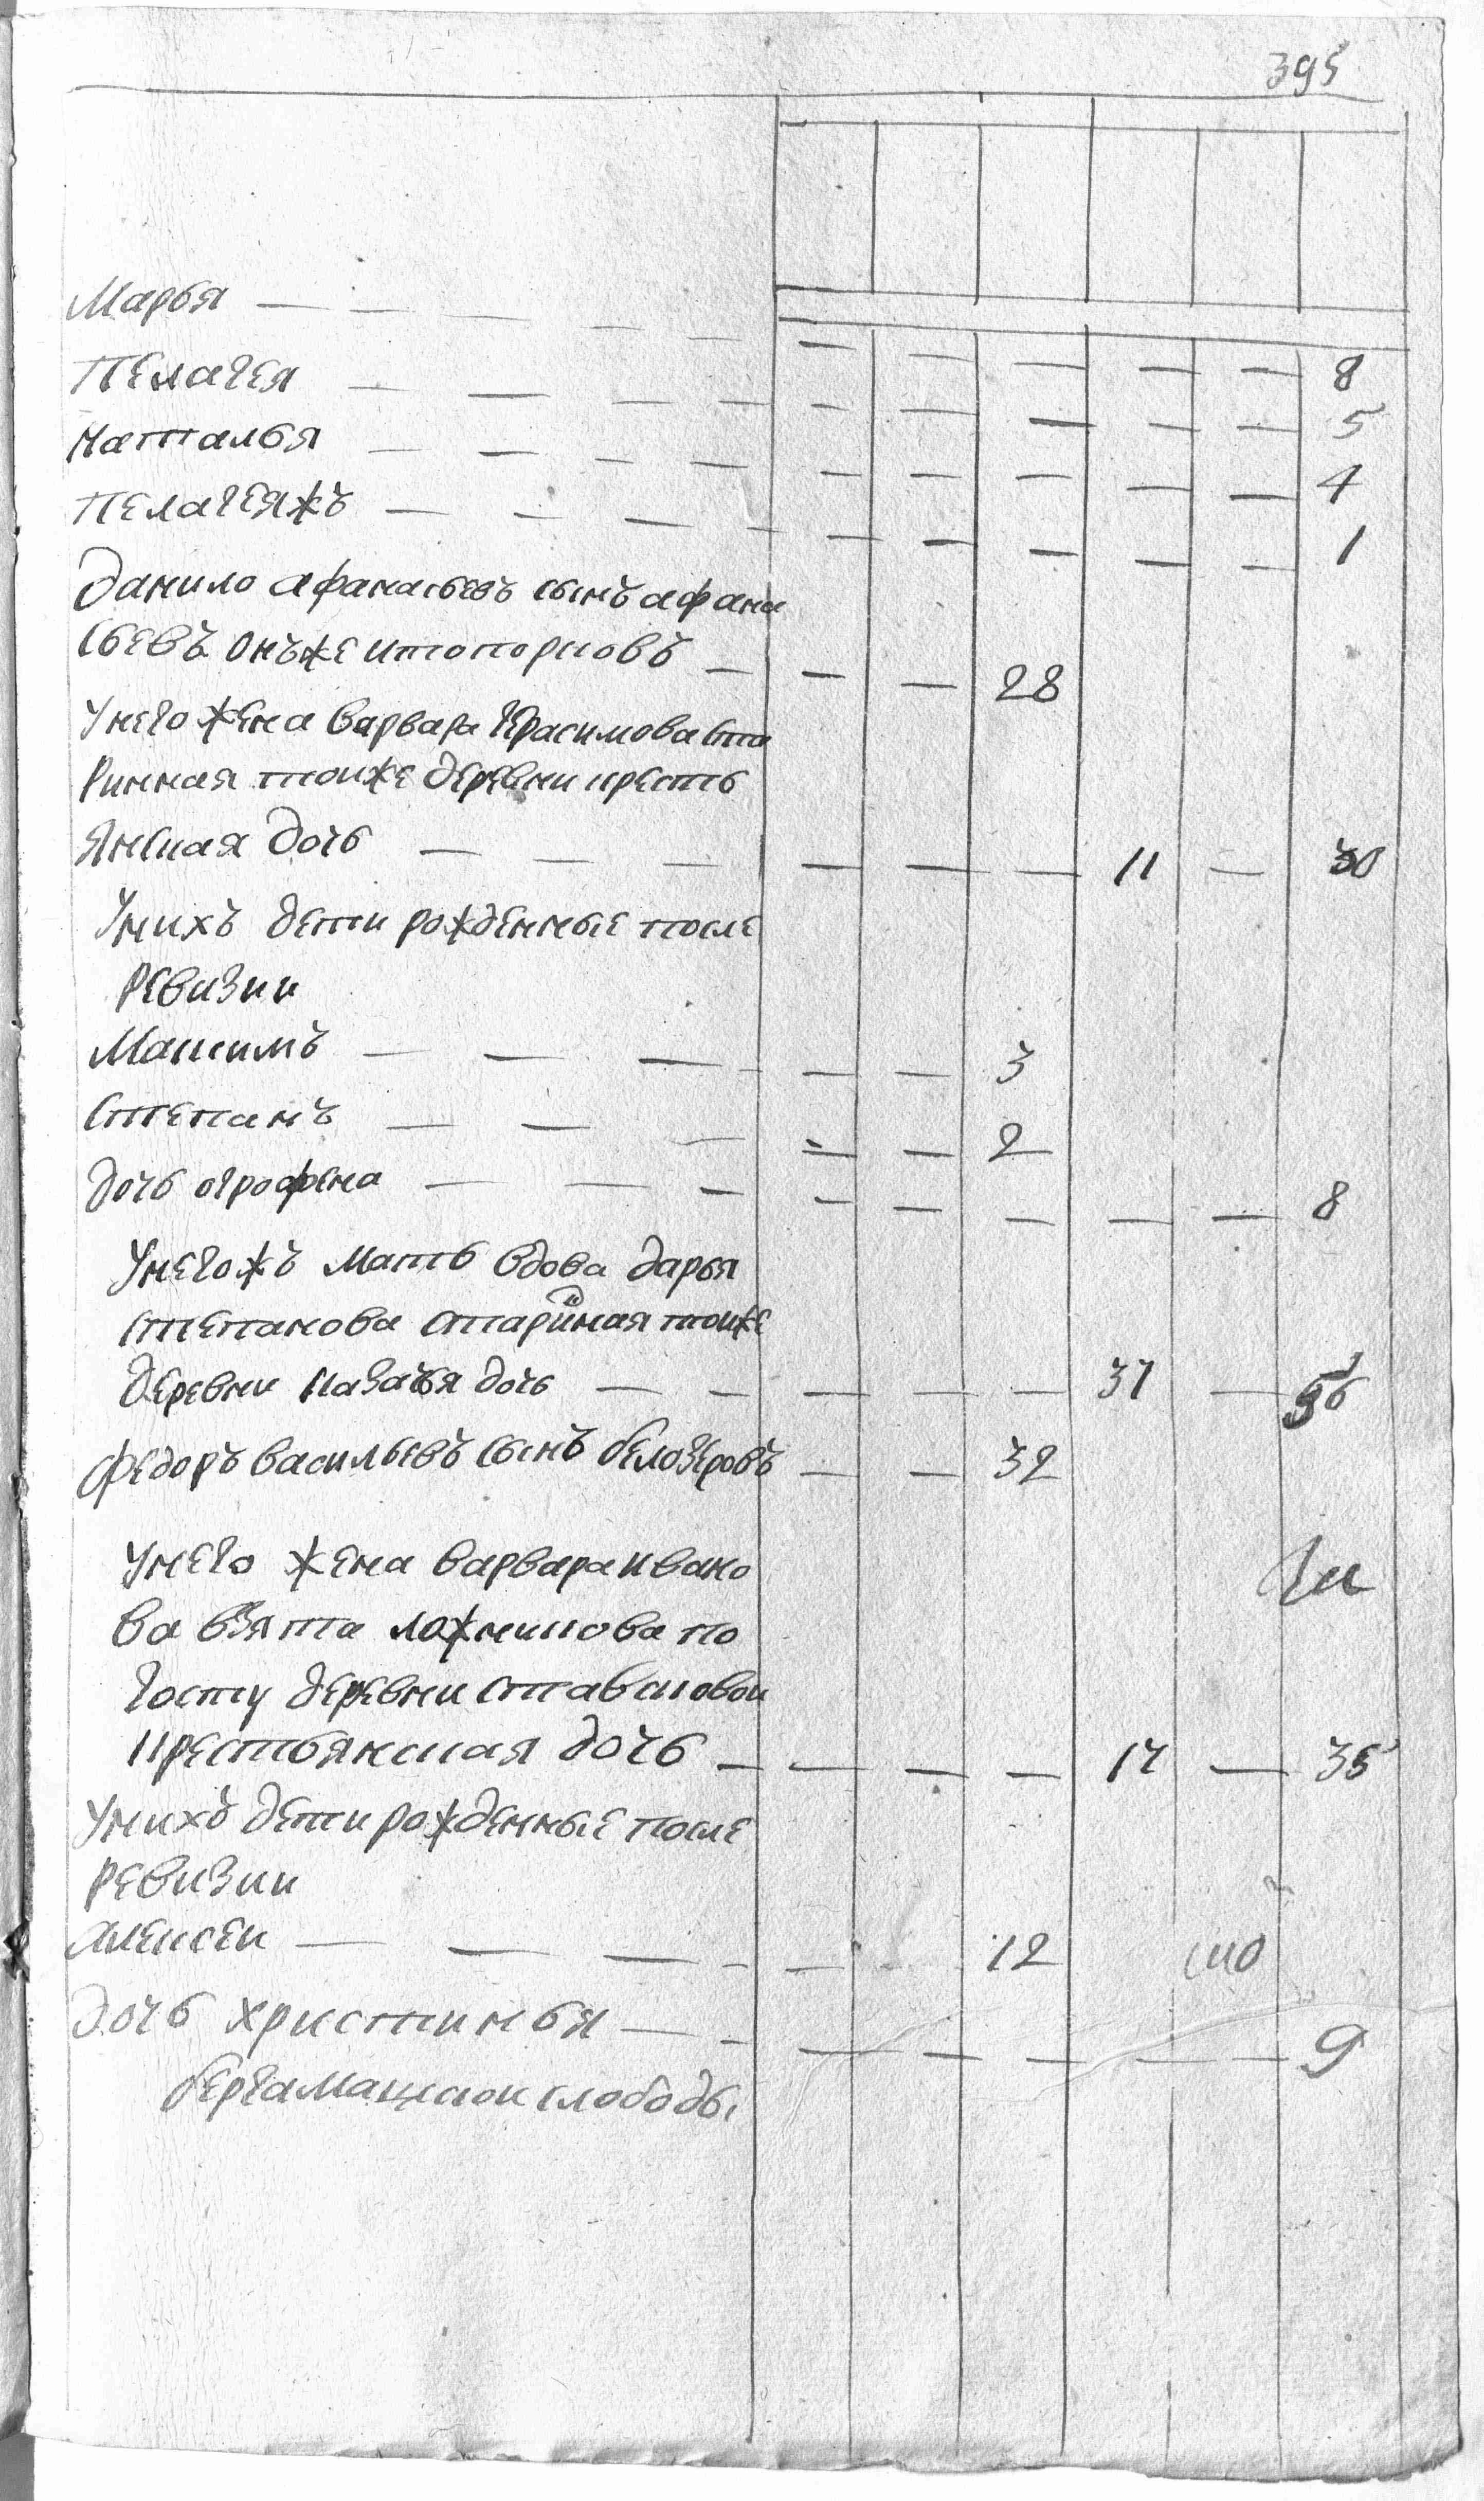 395
Марья — — — — — — — — — — 8
Пелагея — — — — — — — — — — 5
Наталья — — — — — — — — — 4
Пелагеяжъ — — — — — — — — — 1
Данило афанасьевъ сынъ афана
сьевъ онъже итопорковъ — — — 28
Унего жена варвара герасимова ста
ринная тоиже деревни кресть
янская дочь — — — — — — 11 — 30
Унихъ дети рожденные после
ревизии
Максимъ — — — — — — 3
Степанъ — — — — — 2
дочь огрофена — — — — — — — — 8
Унегожъ мать вдова дарья
степанова старинная тоиже
деревни казачья дочь — — — — — 37 — 56
федоръ васильевъ сынъ белозеровъ — — 32
Унего жена варвара ивано
ва взята ложникова по
госту деревни ставсковои
крестьянская дочь — — — — 17 — 35
Унихъ дети рожденные после
ревизии
алексеи — — — — — 12
дочь христинья — — — — — — — 9
бергамацкои слободы